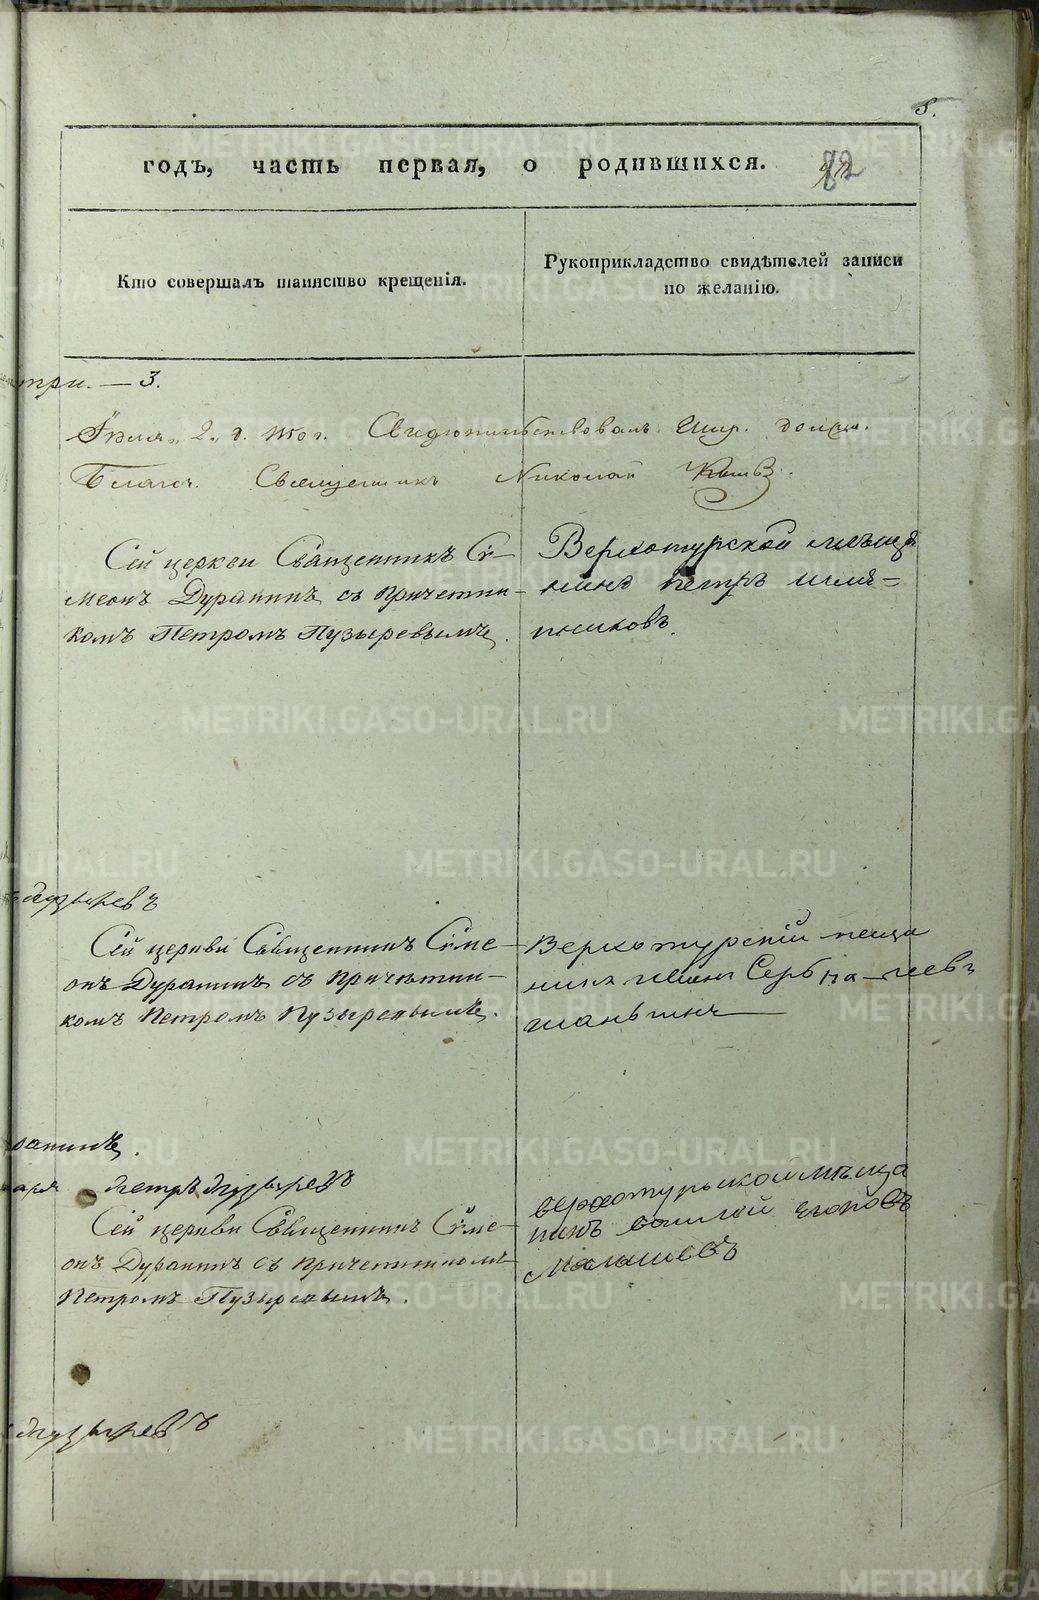 8.
годъ, часть первая, о родившихся.
Кто совершалъ таинство крещенія.
Рукоприкладство свидѣтелей записи
по желанію.
три. — 3.
2. д. 1850 г. Свидѣтельствовалъ
Благоч. Священникъ Николай
Сей церкви Священникъ Си-
меонъ Дурагинъ съ причетни-
комъ Петромъ Пузыревымъ.
Верхотурской мѣща
нинъ Петръ
пниковъ.
Пузыревъ
Сей церкви Священникъ Симе-
онъ Дурагинъ съ причетни-
комъ Петромъ Пузыревымъ.
Верхотурскій меща
нинъ
Петръ Пузыревъ
Сей церкви Священникъ Симе-
онъ Дурагинъ съ причетникомъ
Петромъ Пузыревымъ.
верхотурьской мѣща
нинъ василей
Малышевъ
Пузыревъ
METRIKI.GASO-URAL.RU